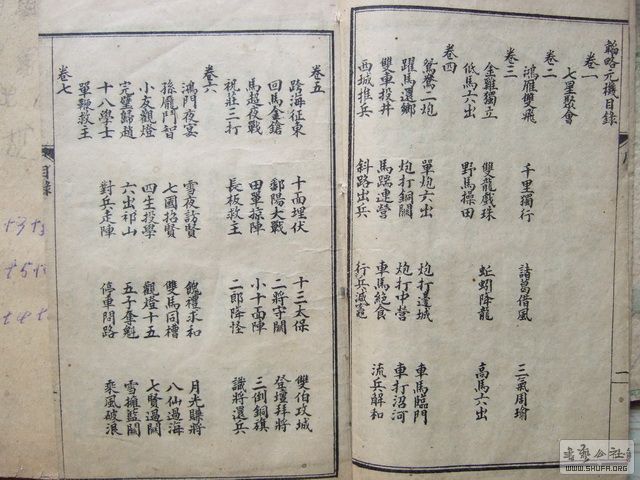 韜略元機目錄
卷一
七星聚會
卷二
鴻雁雙飛 千里獨行 諸葛借風 三氣周瑜
卷三
金雞獨立 雙龍戲珠 蚯蚓降龍 高馬六出
低馬六出 野馬操田
卷四
鴛鴦一炮 單炮六出 炮打邊城 車馬臨門
躍馬還鄉 炮打銅關 炮打中營 車打沼河
雙車投井 馬踹連營 車馬絕食 流兵解和
西城推兵 斜路出兵 行兵減竈
一
卷五
跨海征東 十面埋伏 十三太保 雙伯攻城
回馬金鎗 鄱陽大戰 二將守關 登壇拜將
馬超夜戰 田單掠陣 小十面陣 三倒銅旗
祝莊三打 長板救主 二郎降怪 議將選兵
卷六
鴻門夜宴 雪夜訪賢 餽禮求和 月光賺將
孫龐鬥智 七國招賢 雙馬同槽 八仙過海
小友觀燈 四生投學 觀燈十五 七賢過關
完璧歸趙 六出祁山 五子奪魁 雪擁藍關
十八學士 對兵走陣 停車問路 乘風破浪
單鞭救主
卷七
目錄
書藝公社
WWW.SHUFA.ORG